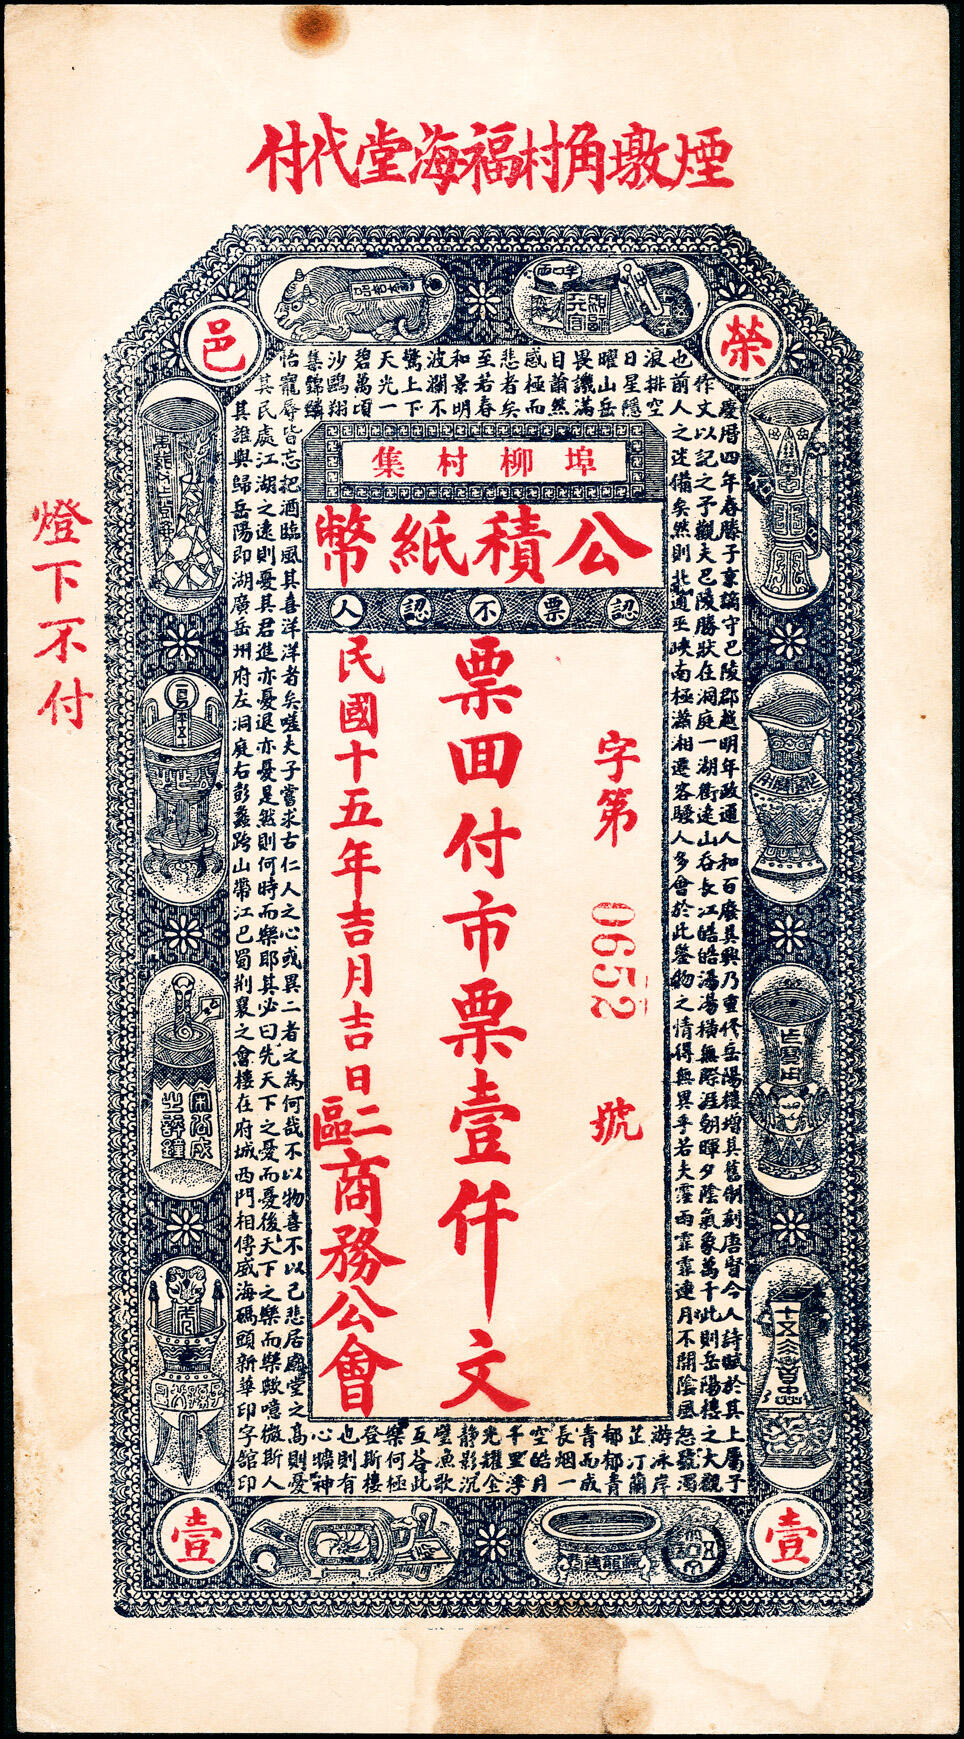 煙墩角村福海堂代付
榮邑
埠柳村集
公積紙幣
認票不認人
字第 0652 號
票囬付市票壹仟文
民國十五年吉月吉日
二區商務公會
燈下不付
壹
壹
慶曆四年春滕子京謫守巴陵郡越明年政通人和百廢具興乃重修岳陽樓增其舊制刻唐賢今人詩賦於其上屬予
作文以記之予觀夫巴陵勝狀在洞庭一湖銜遠山吞長江皓皓湯湯橫無際涯朝暉夕陰氣象萬千此則岳陽樓之大觀
也前人之述備矣然則北通巫峽南極瀟湘遷客騷人多會於此覽物之情得無異乎若夫霪雨霏霏連月不開陰風怒號濁
浪排空
日星隱
曜山岳
畏譏滿
目蕭然
感極而
悲者矣
至若春
和景明
波瀾不
驚上下
天光一
碧萬頃
沙鷗翔
集錦鱗
游泳岸
芷汀蘭
郁郁青
青而或
長烟一
空皓月
千里浮
光耀金
靜影沉
璧漁歌
互答此
樂何極
登斯樓
也則有
心曠神
怡寵辱皆忘把酒臨風其喜洋洋者矣嗟夫予嘗求古仁人之心或異二者之為何哉不以物喜不以己悲居廟堂之高則憂
其民處江湖之遠則憂其君進亦憂退亦憂是然則何時而樂耶其必曰先天下之憂而憂後天下之樂而樂歟噫微斯人
其誰與歸岳陽即湖廣岳州府左洞庭右彭蠡跨山帶江巴蜀荊襄之會樓在府城西門相傳威海碼頭新華印字館印